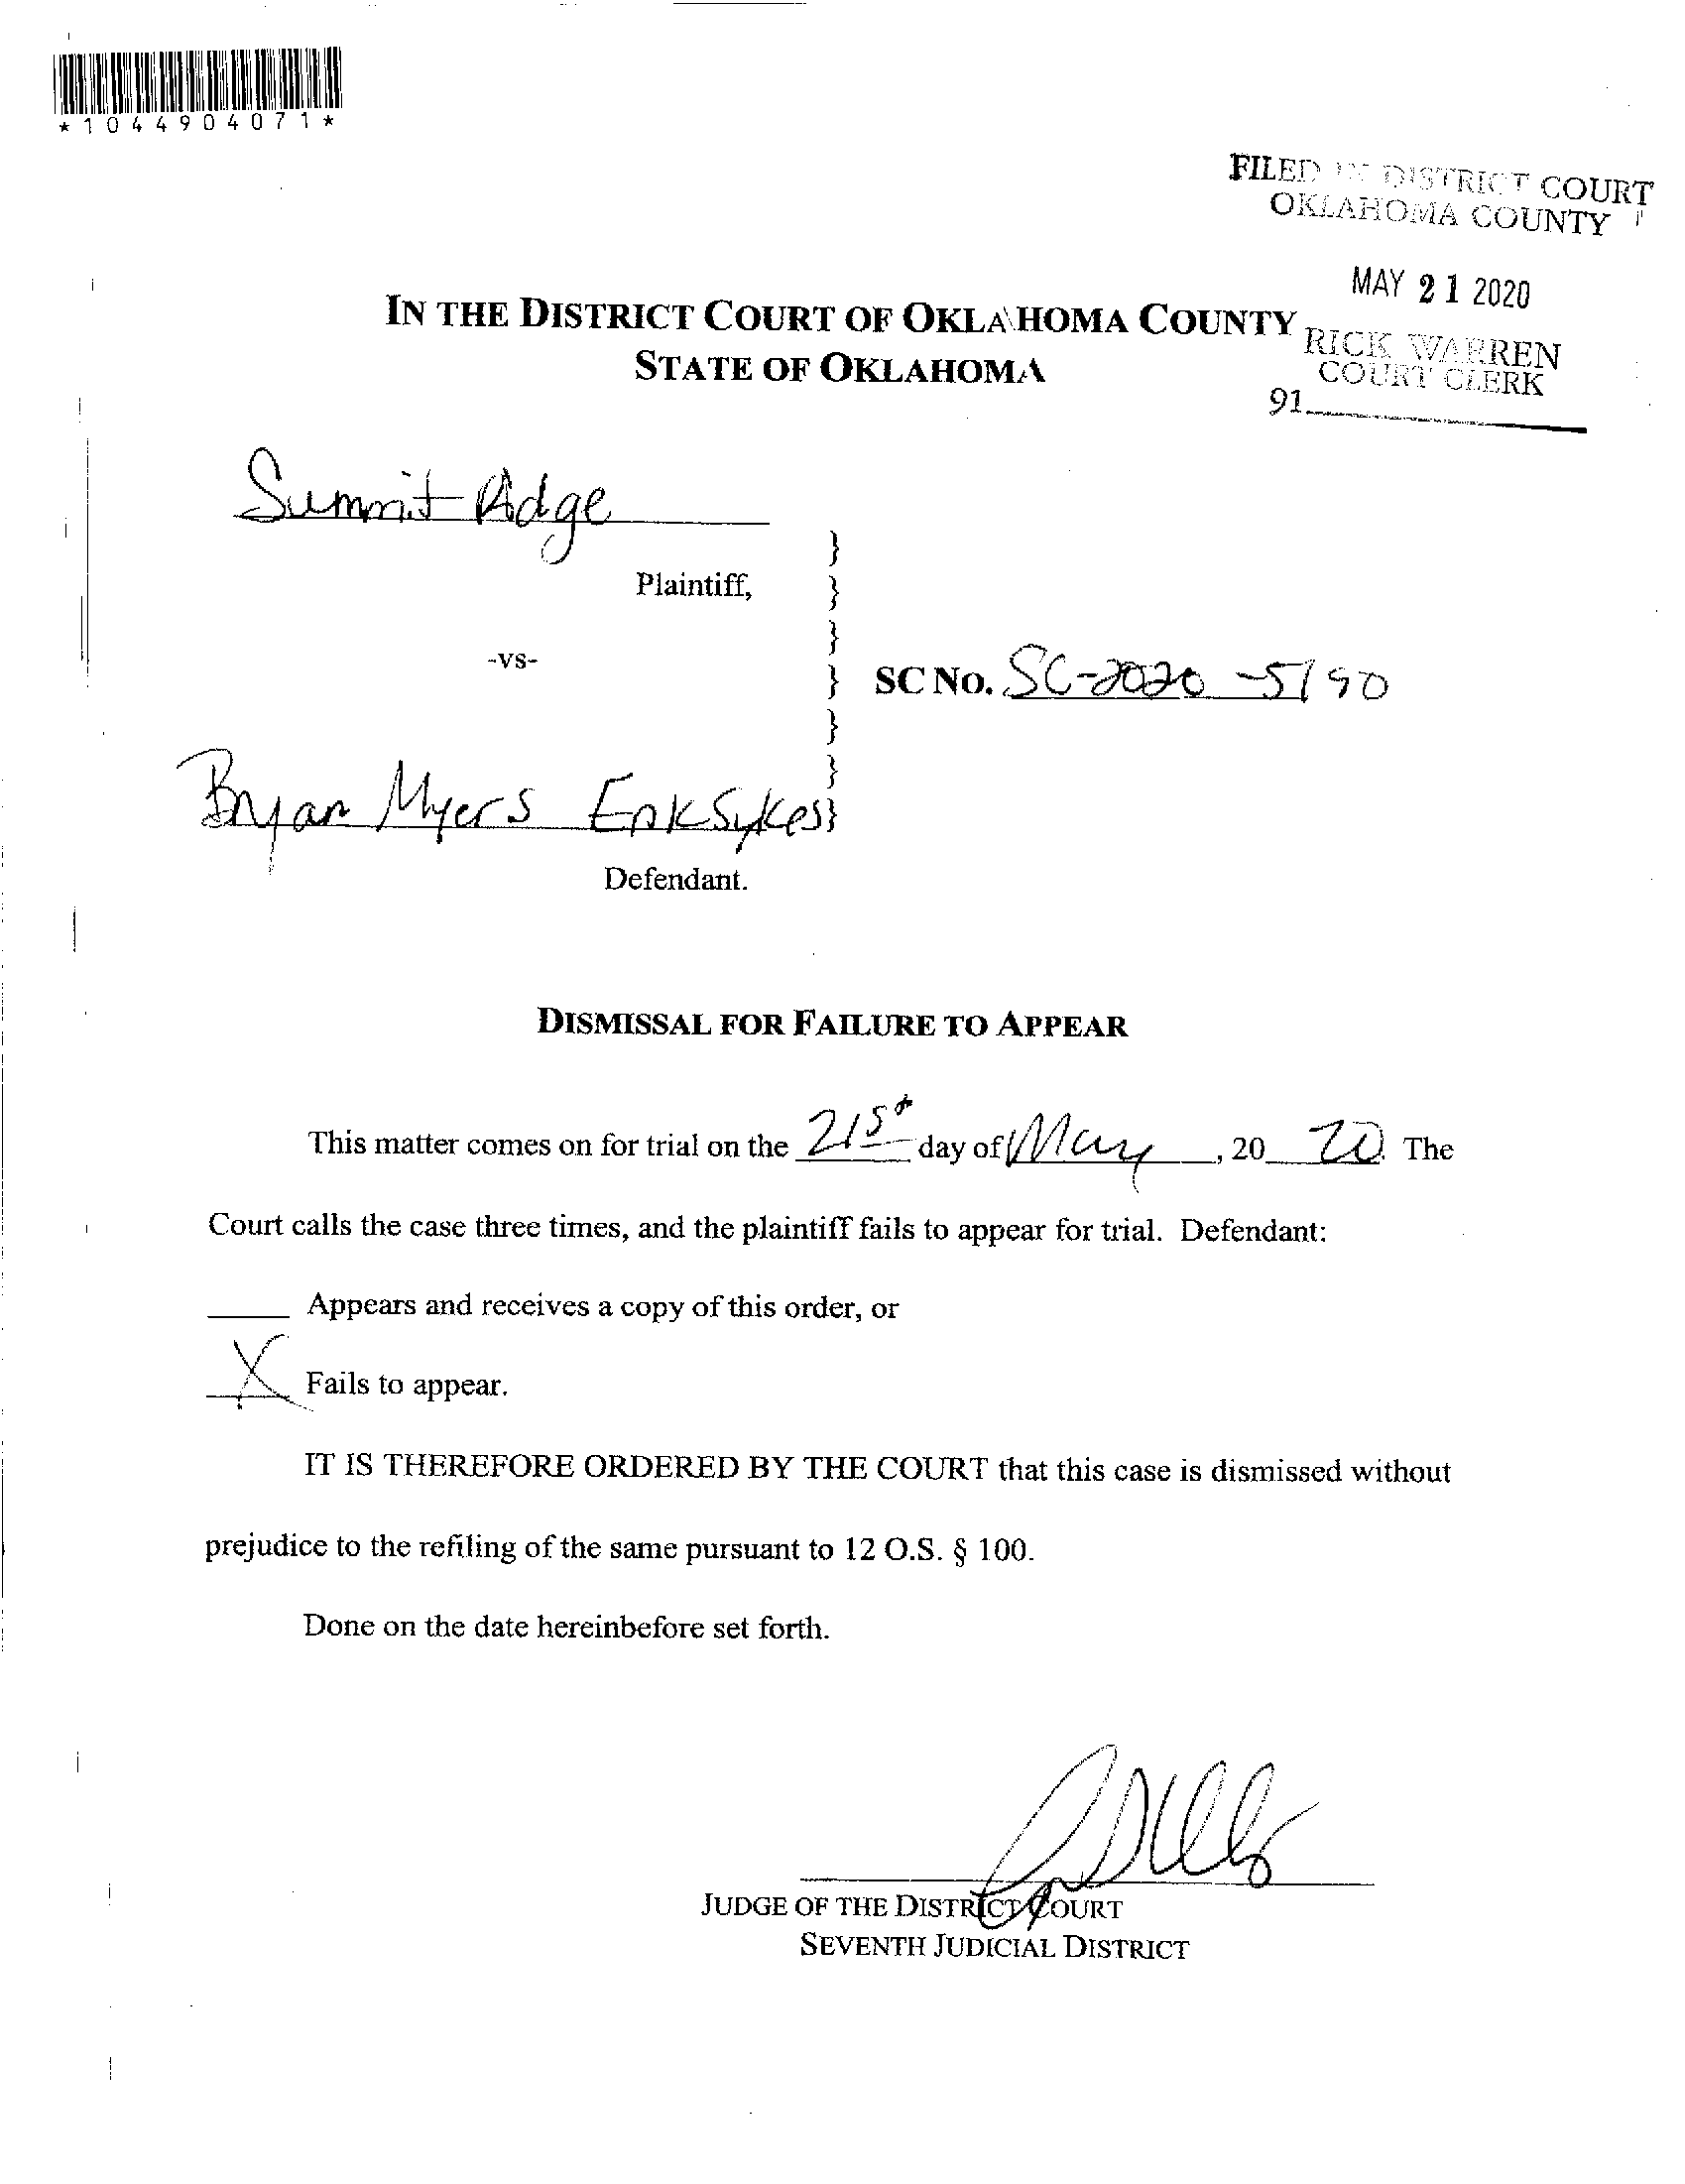 *1044904071*
FILED IN DISTRICT COURT
OKLAHOMA COUNTY
MAY 21 2020
IN THE DISTRICT COURT OF OKLAHOMA COUNTY
STATE OF OKLAHOMA
RICK WARREN
COURT CLERK
91
Summit Ridge
}
Plaintiff, }
}
-vs-
} SC NO. SC-2020-5190
}
}
Bryan Myers Erik Sykes }
Defendant.
DISMISSAL FOR FAILURE TO APPEAR
This matter comes on for trial on the 21st day of May, 20 20. The
Court calls the case three times, and the plaintiff fails to appear for trial. Defendant:
Appears and receives a copy of this order, or
X Fails to appear.
IT IS THEREFORE ORDERED BY THE COURT that this case is dismissed without
prejudice to the refiling of the same pursuant to 12 O.S. § 100.
Done on the date hereinbefore set forth.
JUDGE OF THE DISTRICT COURT
SEVENTH JUDICIAL DISTRICT